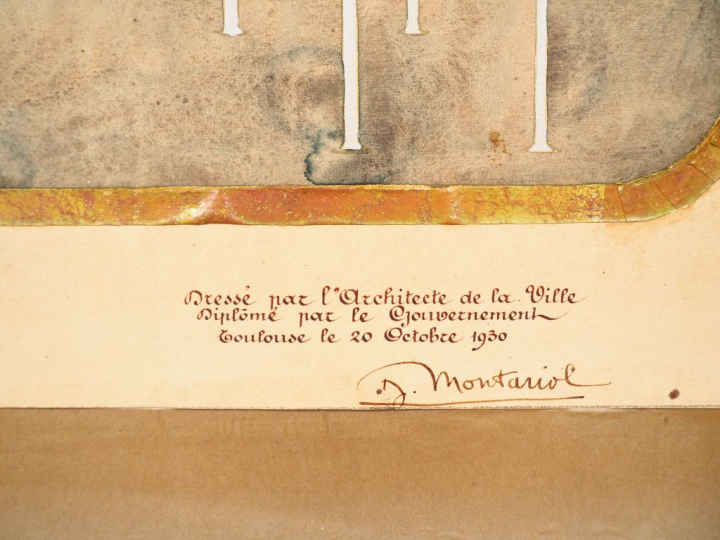 Dressé par l'Architecte de la Ville
Diplômé par le Gouvernement
Toulouse le 20 Octobre 1930
J. Montariol